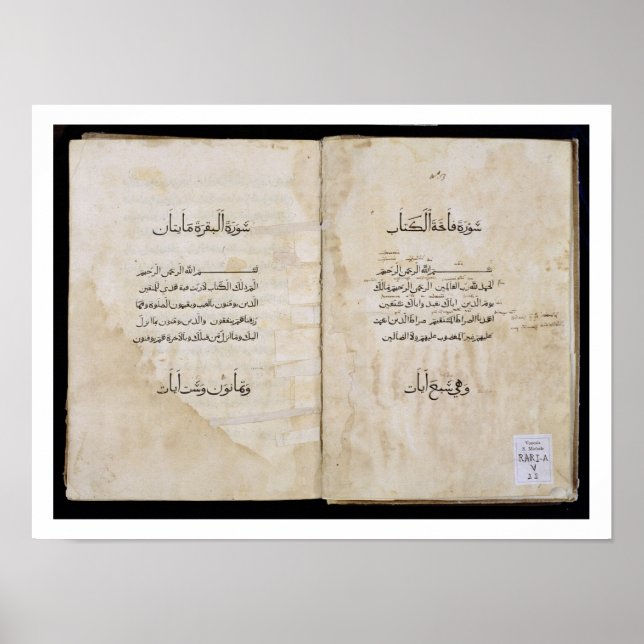 سورة فاتحة الكتاب
بسم الله الرحمن الرحيم
الحمد لله رب العالمين الرحمن الرحيم مالك
يوم الدين اياك نعبد واياك نستعين
اهدنا الصراط المستقيم صراط الذين انعمت
عليهم غير المغضوب عليهم ولا الضالين
وهي سبع أيات
سورة البقرة مايتان
بسم الله الرحمن الرحيم
الم ذلك الكتاب لا ريب فيه هدى للمتقين
الذين يومنون بالغيب ويقيمون الصلوة ومما
رزقناهم ينفقون والذين يومنون بما انزل
اليك وما انزل من قبلك وبالاخرة هم يوقنون
وثمانون وست أيات
Venezia
S. Michele
RARI-A
V